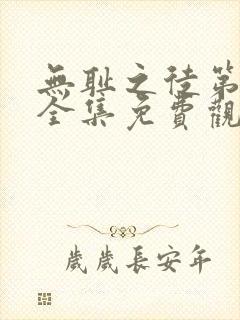 無耻之徒第
全集免費觀
歲歲長安年